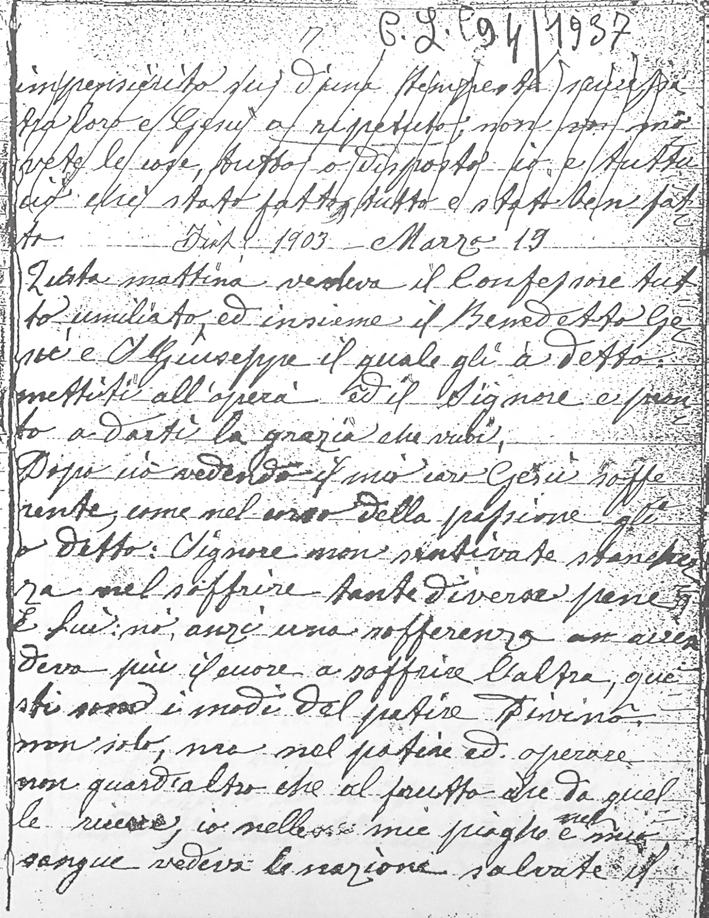 7 C. L. P. 94/1937
impensierito su d'una tempesta successa
tra loro e Gesù a ripetuto, non mo
vete le cose, tutto o disposto io e tutto
ciò ch'è stato fatto, tutto e stato ben fat
to Fiat 1903 Marzo 19
Questa mattina vedeva il Confessore tut
to umiliato, ed insieme il Benedetto Ge
sù e S Giuseppe il quale gli à detto:
mettiti all'opera ed il Signore e pron
to a darti la grazia che vuoi,
Dopo ciò vedendo il mio caro Gesù soffe
rente, come nel corso della passione gli
o detto: Signore non sentivate stanchez
za nel soffrire tante diverse pene?
E lui: nò, anzi una sofferenza accen
deva più il cuore a soffrire l'altra, que
sti sono i modi del patire Divino
non solo, ma nel patire ed operare
non guard'altro che al frutto che da quel
le riceve, io nelle mie piaghe e nel mio
sangue vedeva le nazioni salvate il